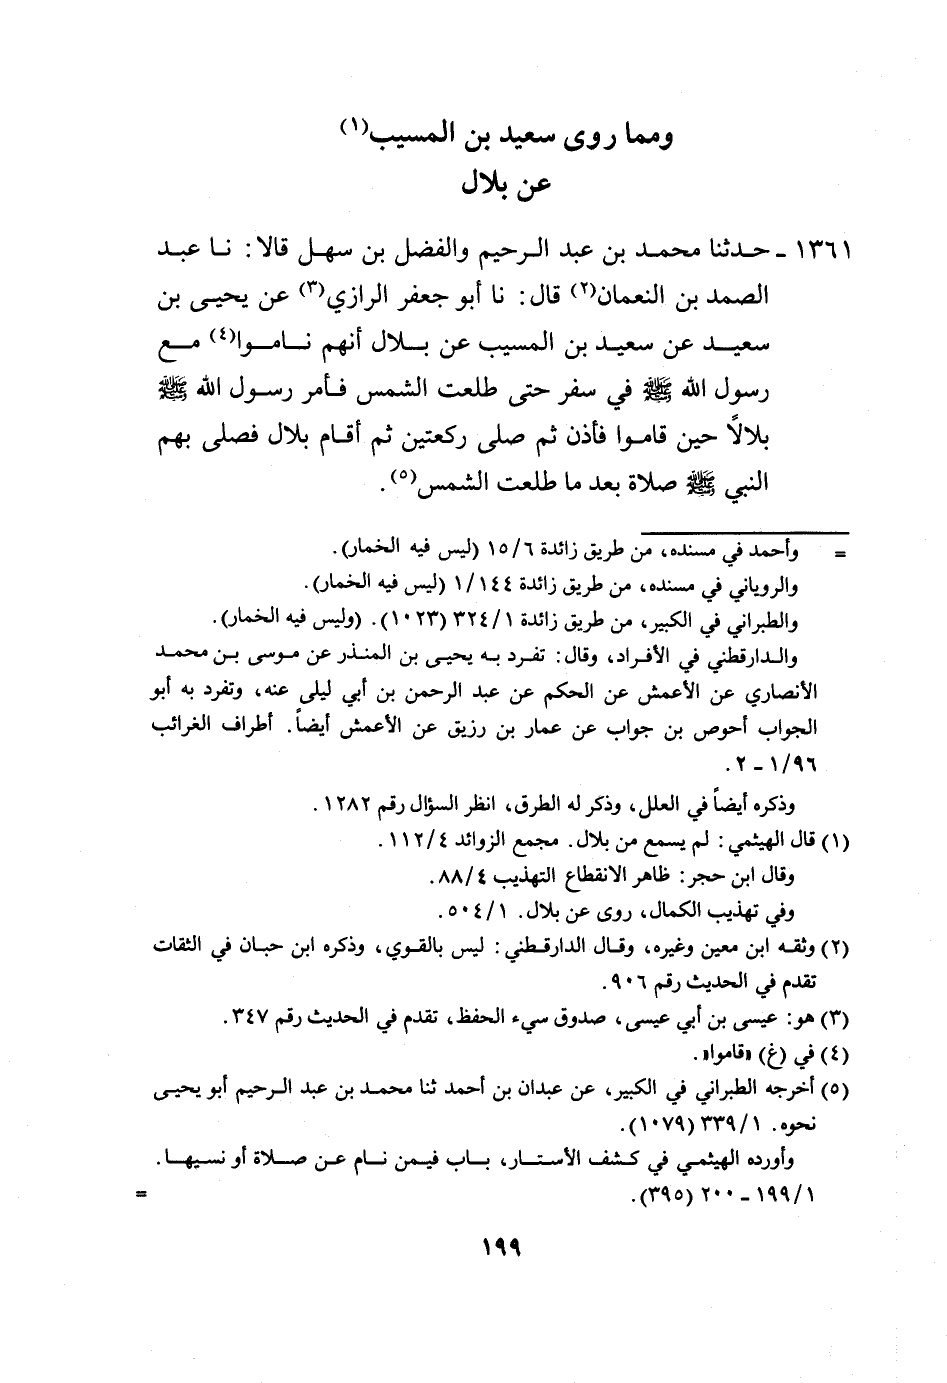 ومما روى سعيد بن المسيب(١)
عن بلال
١٣٦١ ـ حدثنا محمد بن عبد الرحيم والفضل بن سهل قالا: نا عبد
الصمد بن النعمان(٢) قال: نا أبو جعفر الرازي(٣) عن يحيى بن
سعيد عن سعيد بن المسيب عن بلال أنهم ناموا(٤) مع
رسول الله ﷺ في سفر حتى طلعت الشمس فأمر رسول الله ﷺ
بلالاً حين قاموا فأذن ثم صلى ركعتين ثم أقام بلال فصلى بهم
النبي ﷺ صلاة بعد ما طلعت الشمس(٥).
= وأحمد في مسنده، من طريق زائدة ١٥/٦ (ليس فيه الخمار).
والروياني في مسنده، من طريق زائدة ١/١٤٤ (ليس فيه الخمار).
والطبراني في الكبير، من طريق زائدة ٣٢٤/١ (١٠٢٣). (وليس فيه الخمار).
والدارقطني في الأفراد، وقال: تفرد به يحيى بن المنذر عن موسى بن محمد
الأنصاري عن الأعمش عن الحكم عن عبد الرحمن بن أبي ليلى عنه، وتفرد به أبو
الجواب أحوص بن جواب عن عمار بن رزيق عن الأعمش أيضاً. أطراف الغرائب
١/٩٦ ـ ٢.
وذكره أيضاً في العلل، وذكر له الطرق، انظر السؤال رقم ١٢٨٢.
(١) قال الهيثمي: لم يسمع من بلال. مجمع الزوائد ١١٢/٤.
وقال ابن حجر: ظاهر الانقطاع التهذيب ٨٨/٤.
وفي تهذيب الكمال، روى عن بلال. ٥٠٤/١.
(٢) وثقه ابن معين وغيره، وقال الدارقطني: ليس بالقوي، وذكره ابن حبان في الثقات
تقدم في الحديث رقم ٩٠٦.
(٣) هو: عيسى بن أبي عيسى، صدوق سيء الحفظ، تقدم في الحديث رقم ٣٤٧.
(٤) في (غ) «قاموا».
(٥) أخرجه الطبراني في الكبير، عن عبدان بن أحمد ثنا محمد بن عبد الرحيم أبو يحيى
نحوه. ٣٣٩/١ (١٠٧٩).
وأورده الهيثمي في كشف الأستار، باب فيمن نام عن صلاة أو نسيها.
١٩٩/١ ـ ٢٠٠ (٣٩٥). =
١٩٩